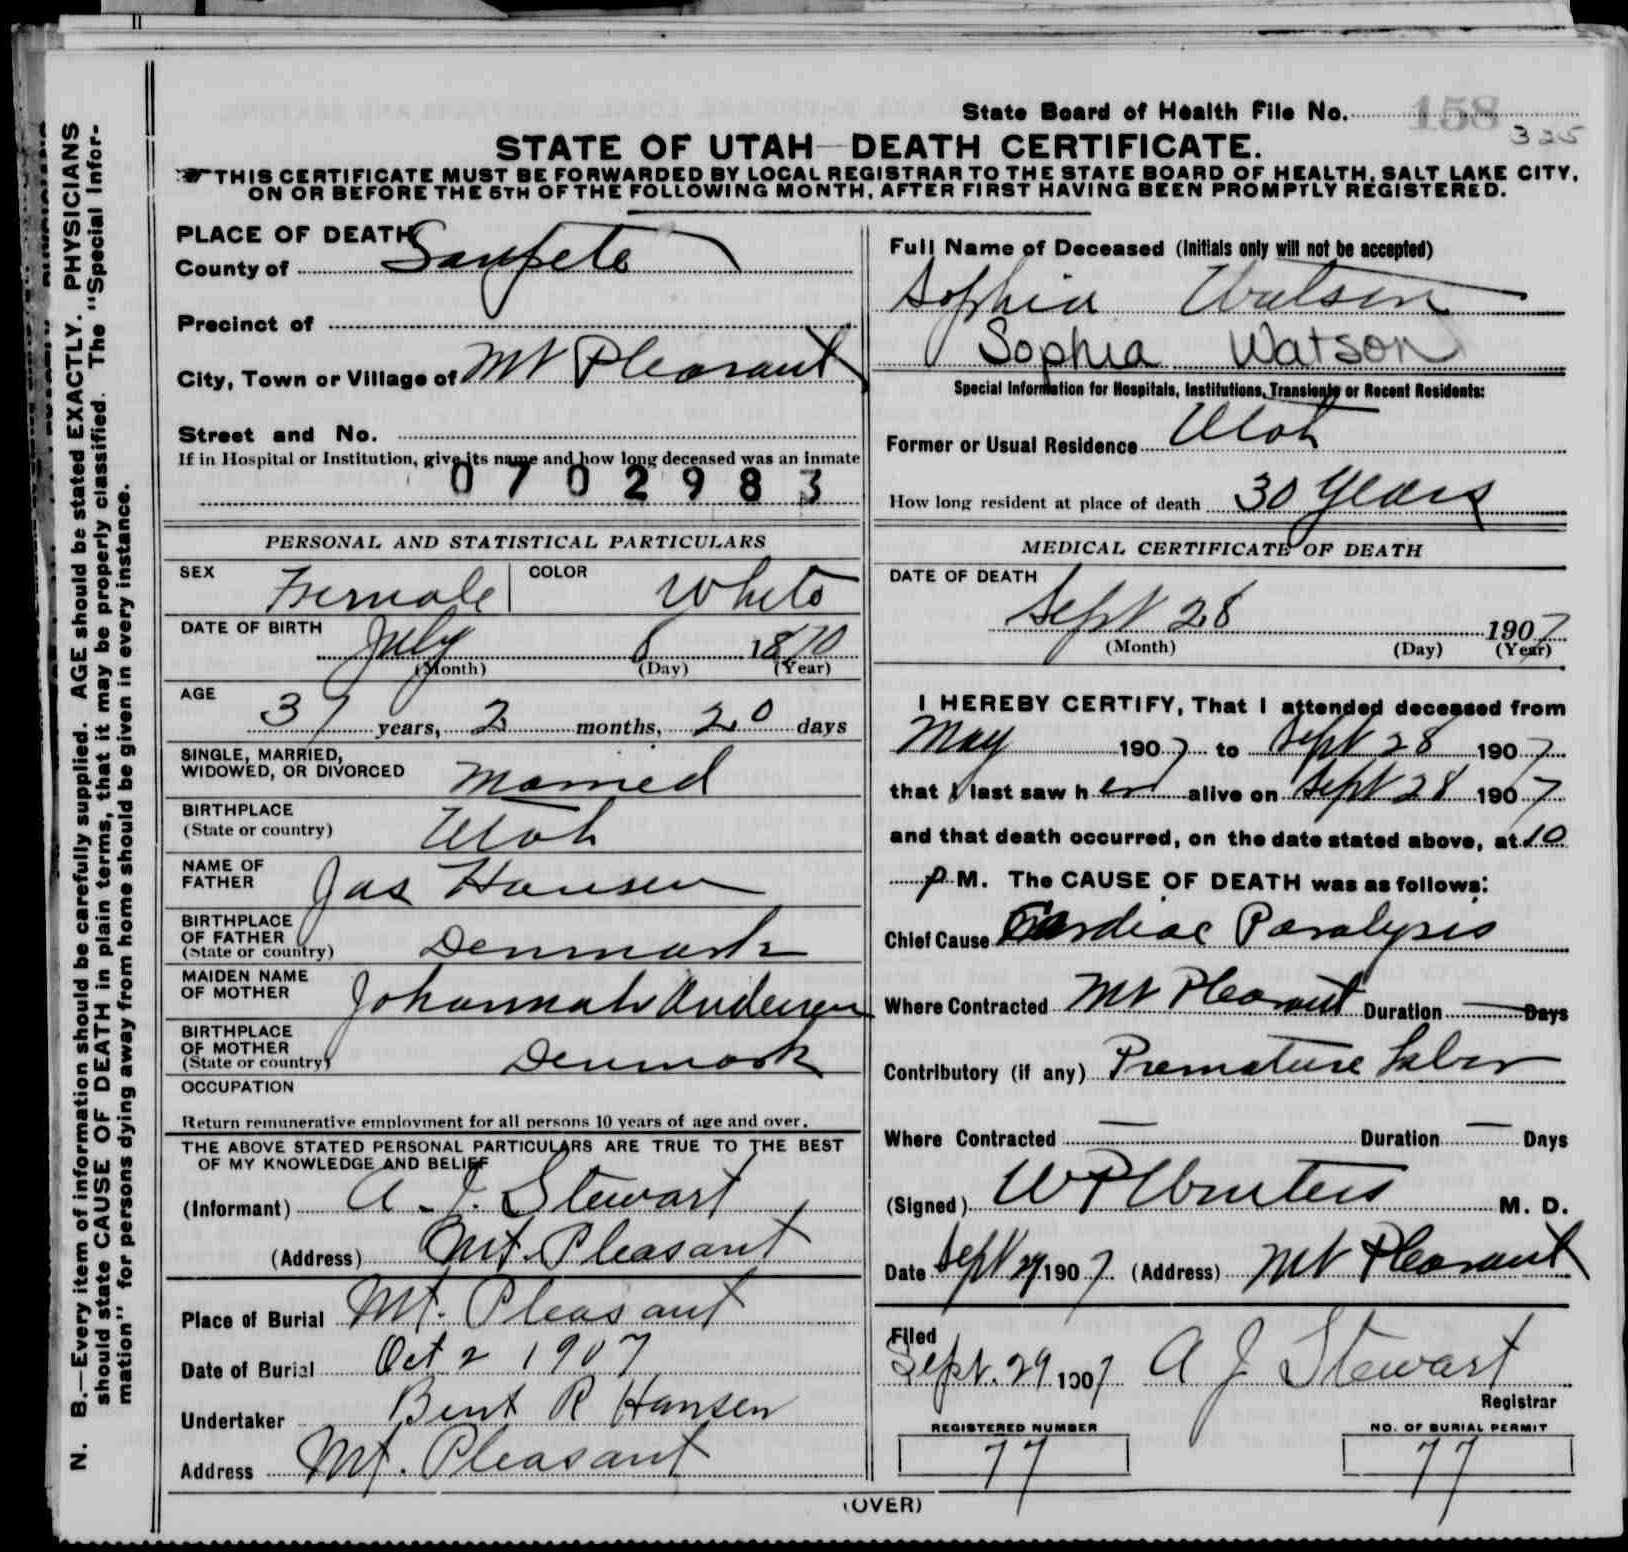 State Board of Health File No. 158
325
STATE OF UTAH—DEATH CERTIFICATE.
THIS CERTIFICATE MUST BE FORWARDED BY LOCAL REGISTRAR TO THE STATE BOARD OF HEALTH, SALT LAKE CITY,
ON OR BEFORE THE 5TH OF THE FOLLOWING MONTH, AFTER FIRST HAVING BEEN PROMPTLY REGISTERED.
N. B.—Every item of information should be carefully supplied. AGE should be stated EXACTLY. PHYSICIANS
should state CAUSE OF DEATH in plain terms, that it may be properly classified. The "Special Infor-
mation" for persons dying away from home should be given in every instance.
PLACE OF DEATH
County of Sanpete
Precinct of
City, Town or Village of Mt Pleasant
Street and No.
If in Hospital or Institution, give its name and how long deceased was an inmate
0702983
PERSONAL AND STATISTICAL PARTICULARS
SEX Female COLOR White
DATE OF BIRTH July 8 1870
(Month) (Day) (Year)
AGE 37 years, 2 months, 20 days
SINGLE, MARRIED,
WIDOWED, OR DIVORCED Married
BIRTHPLACE
(State or country) Utah
NAME OF
FATHER Jas Hansen
BIRTHPLACE
OF FATHER
(State or country) Denmark
MAIDEN NAME
OF MOTHER Johannah Andersen
BIRTHPLACE
OF MOTHER
(State or country) Denmark
OCCUPATION
Return remunerative employment for all persons 10 years of age and over.
THE ABOVE STATED PERSONAL PARTICULARS ARE TRUE TO THE BEST
OF MY KNOWLEDGE AND BELIEF
(Informant) A. J. Stewart
(Address) Mt. Pleasant
Place of Burial Mt. Pleasant
Date of Burial Oct 2 1907
Undertaker Bent R Hansen
Address Mt. Pleasant
Full Name of Deceased (Initials only will not be accepted)
Sophia Watson
Sophia Watson
Special Information for Hospitals, Institutions, Transients or Recent Residents:
Former or Usual Residence Utah
How long resident at place of death 30 Years
MEDICAL CERTIFICATE OF DEATH
DATE OF DEATH
Sept 28 1907
(Month) (Day) (Year)
I HEREBY CERTIFY, That I attended deceased from
May 1907 to Sept 28 1907
that I last saw her alive on Sept 28 1907
and that death occurred, on the date stated above, at 10
P M. The CAUSE OF DEATH was as follows:
Chief Cause Cardiac Paralysis
Where Contracted Mt Pleasant Duration — Days
Contributory (if any) Premature Labor
Where Contracted — Duration — Days
(Signed) W P Winters M. D.
Date Sept 29 1907 (Address) Mt Pleasant
Filed
Sept. 29 1907 A J Stewart
Registrar
REGISTERED NUMBER
77
NO. OF BURIAL PERMIT
77
(OVER)